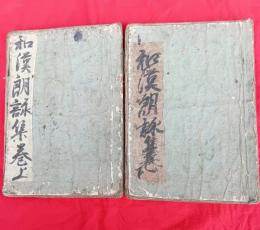 和漢朗詠集巻上
和漢朗詠集